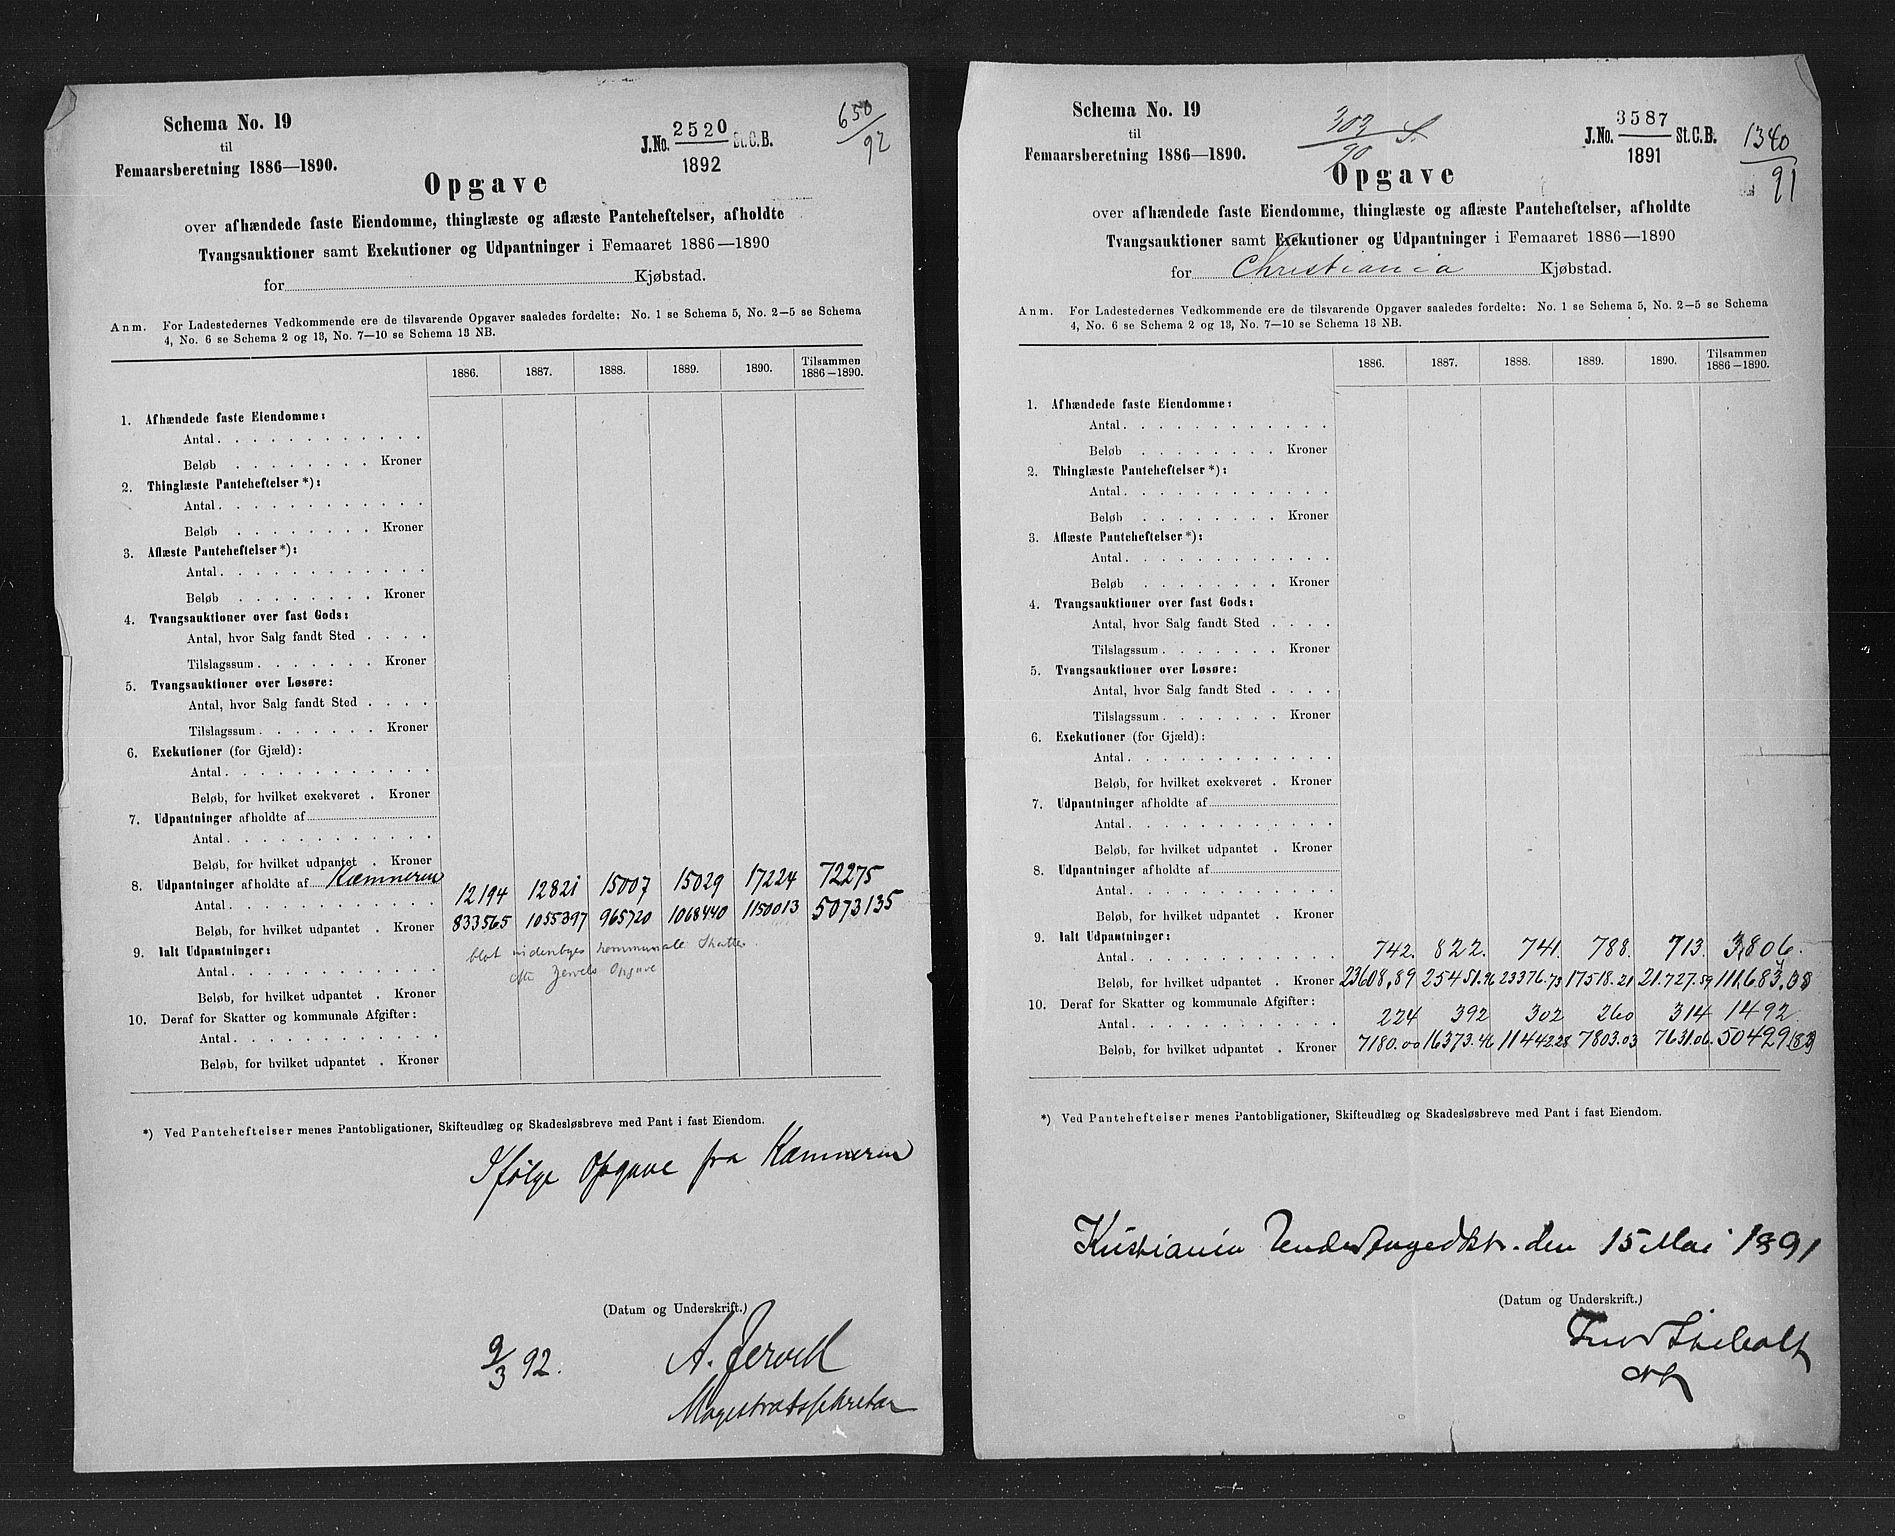 Schema No. 19
til
Femaarsberetning 1886—1890.
J.No. 2520 St.C.B.
1892
650
92
Opgave
over afhændede faste Eiendomme, thinglæste og aflæste Panteheftelser, afholdte
Tvangsauktioner samt Exekutioner og Udpantninger i Femaaret 1886—1890
for Kjøbstad.
Anm. For Ladestedernes Vedkommende ere de tilsvarende Opgaver saaledes fordelte: No. 1 se Schema 5, No. 2—5 se Schema
4, No. 6 se Schema 2 og 13, No. 7—10 se Schema 13 NB.
1886. 1887. 1888. 1889. 1890. Tilsammen
1886—1890.
1. Afhændede faste Eiendomme:
Antal
Beløb Kroner
2. Thinglæste Panteheftelser *):
Antal
Beløb Kroner
3. Aflæste Panteheftelser *):
Antal
Beløb Kroner
4. Tvangsauktioner over fast Gods:
Antal, hvor Salg fandt Sted
Tilslagssum Kroner
5. Tvangsauktioner over Løsøre:
Antal, hvor Salg fandt Sted
Tilslagssum Kroner
6. Exekutioner (for Gjæld):
Antal
Beløb, for hvilket exekveret Kroner
7. Udpantninger afholdte af
Antal
Beløb, for hvilket udpantet Kroner
8. Udpantninger afholdte af Kæmneren
Antal 12194 12821 15007 15029 17224 72275
Beløb, for hvilket udpantet Kroner 833565 1055397 965720 1068440 1150013 5073135
9. Ialt Udpantninger: blot kommunale Skatter.
Antal Opgave
Beløb, for hvilket udpantet Kroner
10. Deraf for Skatter og kommunale Afgifter:
Antal
Beløb, for hvilket udpantet Kroner
*) Ved Panteheftelser menes Pantobligationer, Skifteudlæg og Skadesløsbreve med Pant i fast Eiendom.
Ifølge Opgave fra Kæmneren
(Datum og Underskrift.)
9/3 92. A. Jervell
Magistratssekretær
Schema No. 19
til
Femaarsberetning 1886—1890.
303
90
J.No. 3587 St.C.B.
1891
1340
91
Opgave
over afhændede faste Eiendomme, thinglæste og aflæste Panteheftelser, afholdte
Tvangsauktioner samt Exekutioner og Udpantninger i Femaaret 1886—1890
for Christiania Kjøbstad.
Anm. For Ladestedernes Vedkommende ere de tilsvarende Opgaver saaledes fordelte: No. 1 se Schema 5, No. 2—5 se Schema
4, No. 6 se Schema 2 og 13, No. 7—10 se Schema 13 NB.
1886. 1887. 1888. 1889. 1890. Tilsammen
1886—1890.
1. Afhændede faste Eiendomme:
Antal
Beløb Kroner
2. Thinglæste Panteheftelser *):
Antal
Beløb Kroner
3. Aflæste Panteheftelser *):
Antal
Beløb Kroner
4. Tvangsauktioner over fast Gods:
Antal, hvor Salg fandt Sted
Tilslagssum Kroner
5. Tvangsauktioner over Løsøre:
Antal, hvor Salg fandt Sted
Tilslagssum Kroner
6. Exekutioner (for Gjæld):
Antal
Beløb, for hvilket exekveret Kroner
7. Udpantninger afholdte af
Antal
Beløb, for hvilket udpantet Kroner
8. Udpantninger afholdte af
Antal
Beløb, for hvilket udpantet Kroner
9. Ialt Udpantninger:
Antal 742. 822. 741. 788. 713. 3,806.
Beløb, for hvilket udpantet Kroner 23608,89 25451.96 23376.73 17518.21 21.727.59
10. Deraf for Skatter og kommunale Afgifter:
Antal 224 392 302 260 314 1492
Beløb, for hvilket udpantet Kroner 7180.00 16373.46 11442.28 7803.03 7631.06. 50429
*) Ved Panteheftelser menes Pantobligationer, Skifteudlæg og Skadesløsbreve med Pant i fast Eiendom.
Kristiania den 15 Mai 1891
(Datum og Underskrift.)